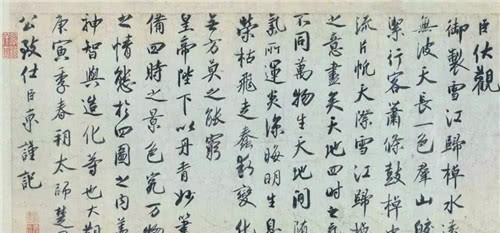 臣伏觀
御製雪江歸棹水遠
無波天長一色群山皎
潔行客蕭條鼓棹中
流片帆天際雪江歸棹
之意盡矣天地四時之
不同萬物生天地間隨
氣所運炎涼晦明生息
榮枯飛走蠢動變化
無方莫之能窮
皇帝陛下以丹青妙筆
備四時之景色究萬物
之情態於四圖之內蓋
神智與造化等也大觀
庚寅季春朔太師楚國
公致仕臣京謹記